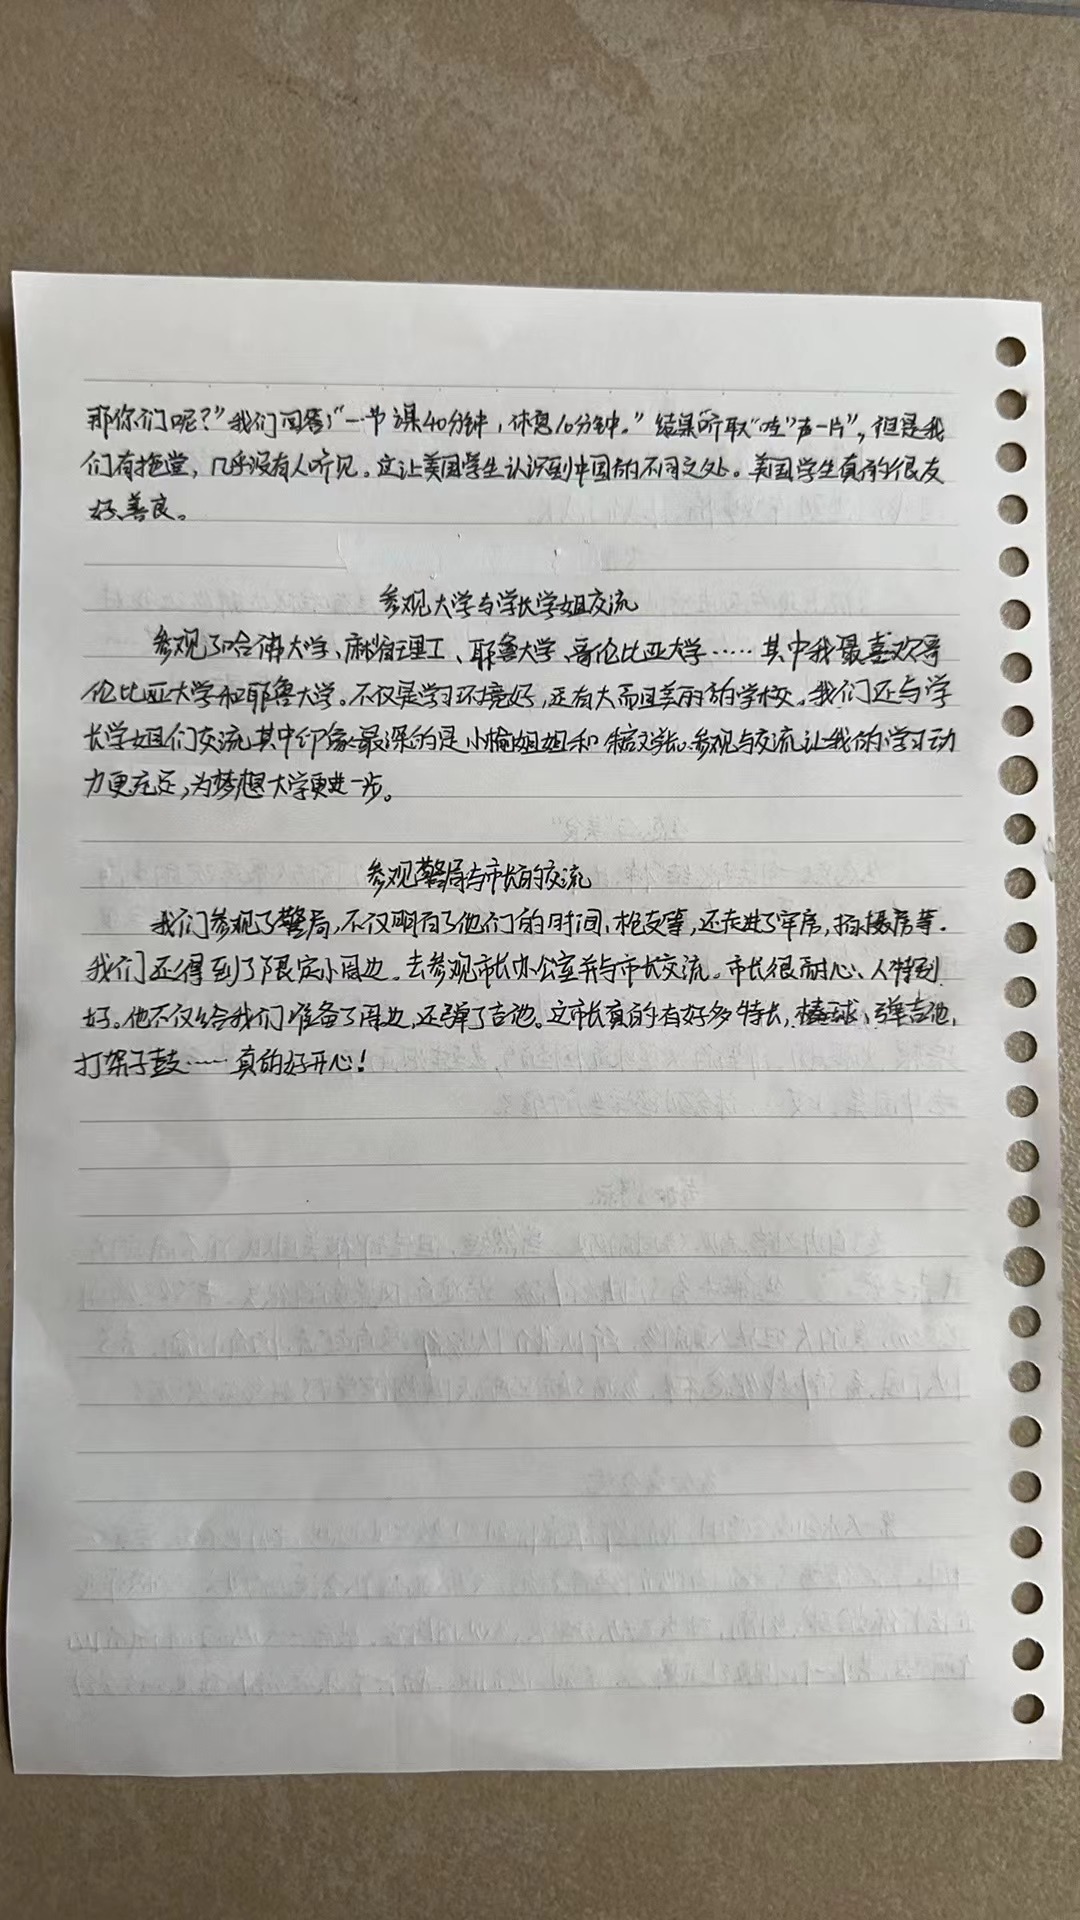 那你们呢？”我们回答：“一节课40分钟，休息10分钟。”结果听取“哇”声一片”，但是我
们有拖堂，几乎没有人听见。这让美国学生认识到中国的不同之处。美国学生真的很友
好、善良。
参观大学与学长学姐交流
参观了哈佛大学、麻省理工、耶鲁大学、哥伦比亚大学……其中我最喜欢哥
伦比亚大学和耶鲁大学。不仅是学习环境好，还有大而且美丽的学校。我们还与学
长学姐们交流，其中印象最深的是小榆姐姐和学长。参观与交流让我的学习动
力更充足，为梦想大学更进一步。
参观警局与市长的交流
我们参观了警局，不仅明白了他们的时间、枪支等，还走进了牢房，拍摄房等。
我们还得到了限定小周边。去参观市长办公室并与市长交流。市长很耐心、人特别
好。他不仅给我们准备了周边，还弹了吉他。这市长真的有好多特长，棒球、弹吉他，
打架子鼓……真的好开心！